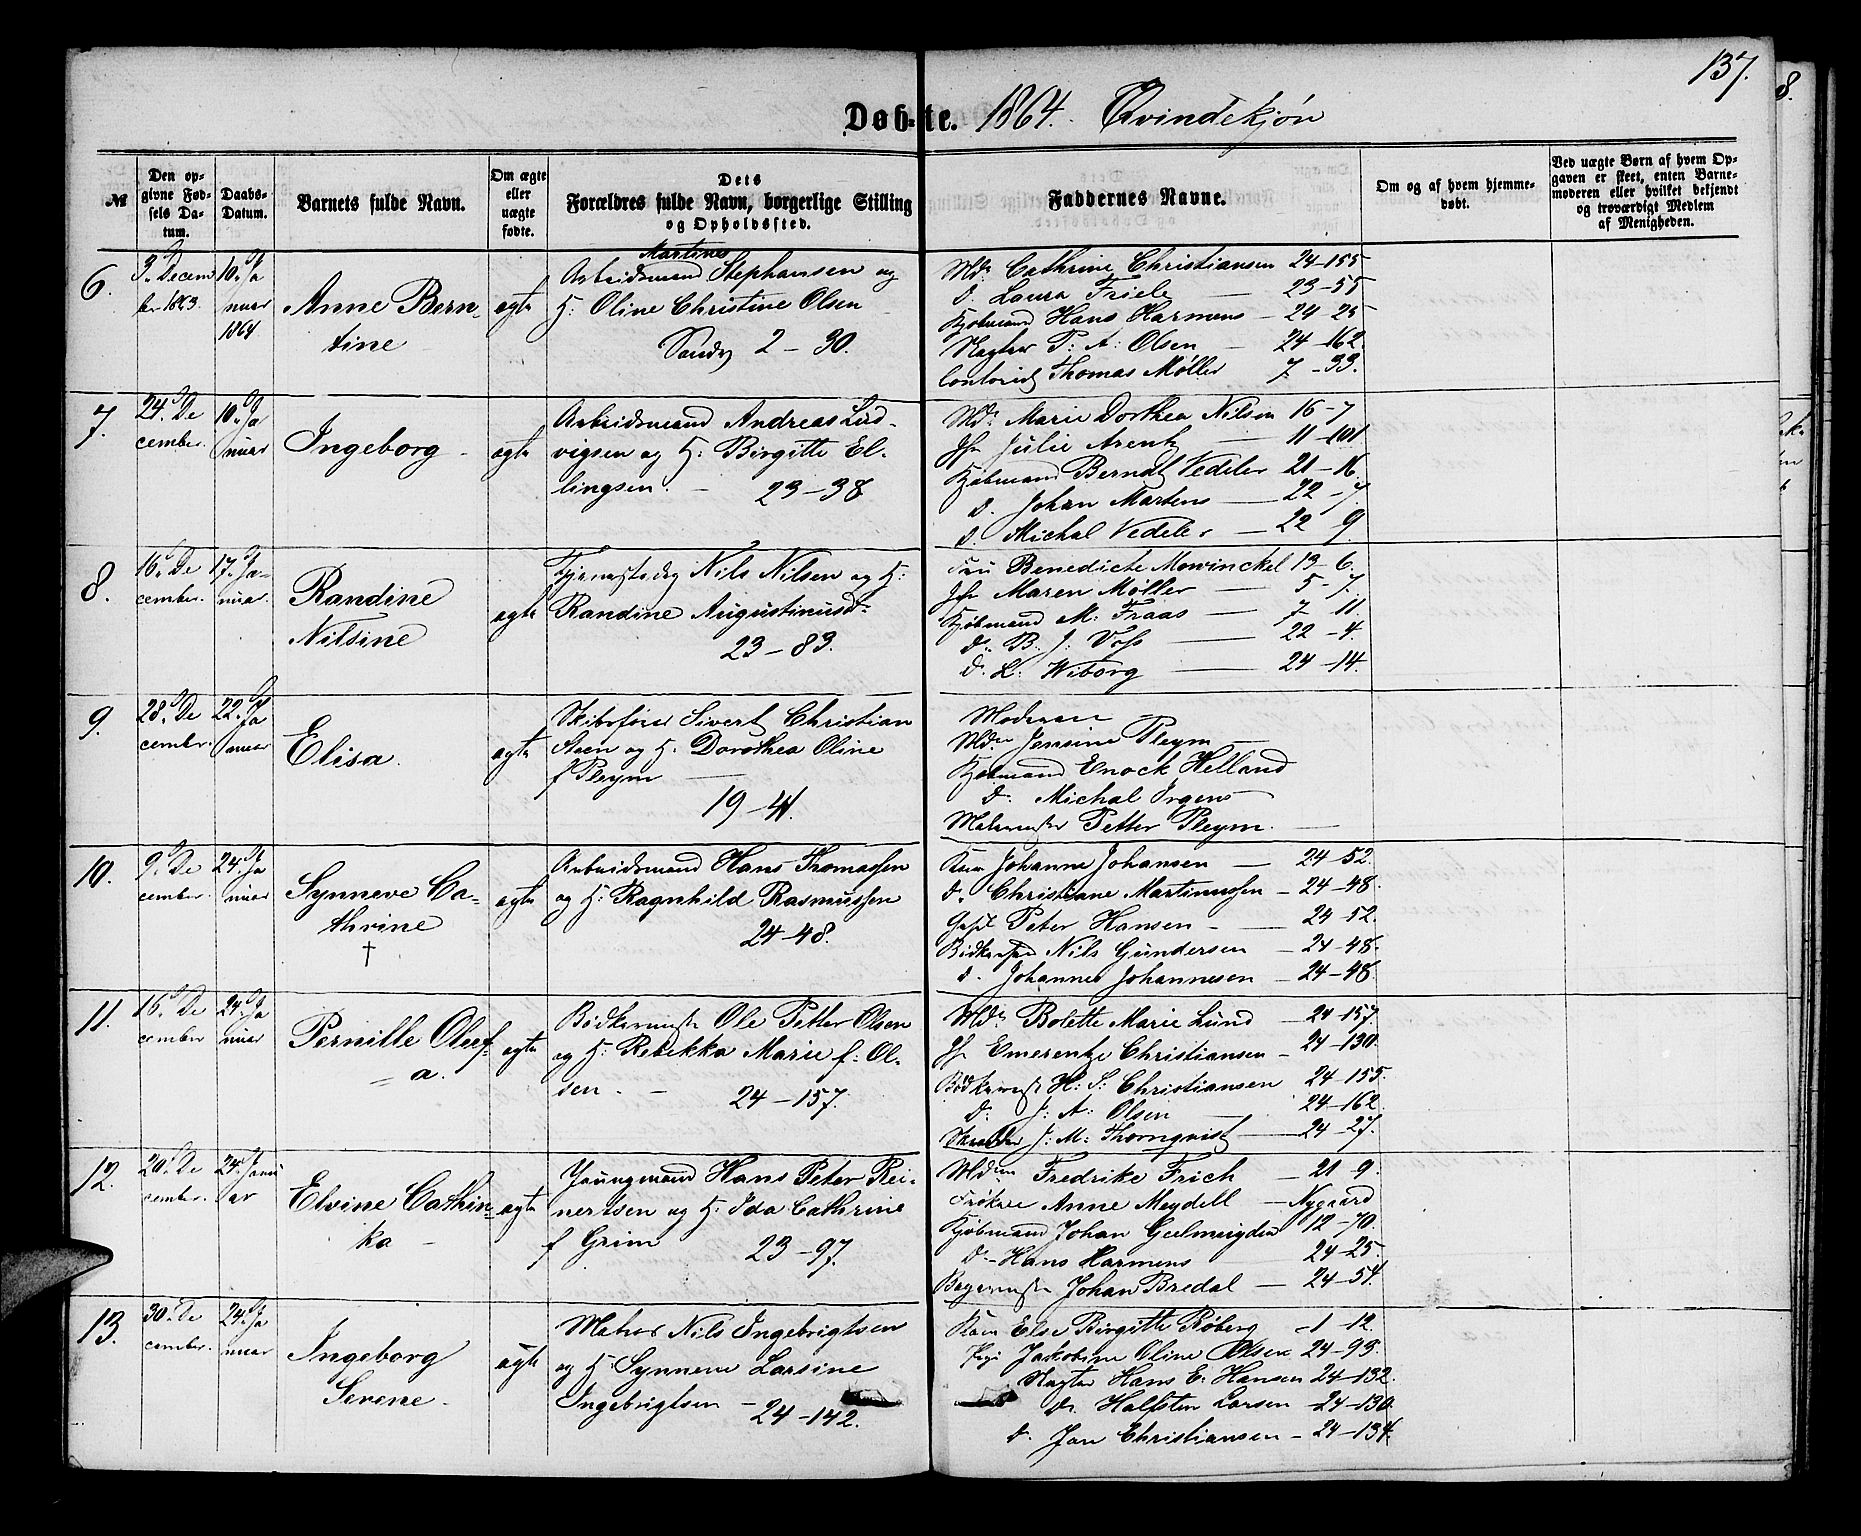 137.
Döbte. 1864. Qvindekjøn
№
Den opgivne Fødsels Datum.
Daabs-Datum.
Barnets fulde Navn.
Om ægte eller uægte fødte.
Dets Forældres fulde Navn, borgerlige Stilling og Opholdssted.
Faddernes Navne.
Om og af hvem hjemmedøbt.
Ved uægte Børn af hvem Opgaven er skeet, enten Barnemoderen eller hvilket bekjendt og troværdigt Medlem af Menigheden.
6.
3. Decem
ber 1863.
10. Ja
nuar
1864
Anne Bern-
tine
ægte
Martinus
Arbeidsmand Stephansen og
H: Oline Christine Olsen
Sandv 2-30.
Md: Cathrine Christiansen 24-155
d. Laura Friele 23-55
Kjøbmand Hans Harmens 24-25
P. A: Olsen 24-162.
Contorist Thomas Møller 7-33.
7.
24. De
cember.
10. Ja
nuar
Ingeborg
ægte
Arbeidsmand Andreas Lud-
vigsen og H: Birgitte El-
lingsen. 23-38
Md: Marie Dorthea Nilsen 16-7
Jfr Julie Arentz 11-101
Kjøbmand Berndt Vedeler 21-16
d. Johan Martens 22-7
d. Michal Vedeler 22 9.
8.
16. De
cember.
17. Ja-
nuar.
Randine
Nilsine
ægte
Nils Nilsen og H:
Randine Augustinusd:
23-83.
Fru Benedicte Mowinckel 13-6.
Jfr Maren Møller 5-7.
Kjøbmand M. Fraas 7-11.
d. B. J. Voss 22-4.
d. L. Wiborg 24-14.
9.
28. De
cember.
22. Ja
nuar
Elisa.
ægte
Skibsfører Sivert Christian
Steen og H. Dorothea Oline
f Pleym
19-41.
Moderen
Mdm Jensine Pleym
Kjøbmand Enock Helland
d. Michal Irgens
Malermester Petter Pleym.
10.
9. De
cember.
24. Ja
nuar
Synneve Ca-
thrine
†
ægte
Arbeidsmand Hans Thomassen
og H: Ragnhild Rasmussen
24-48.
Kone Johanne Johansen 24-52.
d. Christiane Martinussen 24-48.
Peter Hansen 24-52.
Nils Gundersen 24-48.
d. Johannes Johannesen 24-48.
11.
16. De
cember
24. Ja
nuar
Pernille Oluf-
a.
ægte
Bødkermester Ole Petter Olsen
og H: Rebekka Marie f: Ol-
sen. 24-157.
Md: Bolette Marie Lund 24-157.
Jfr Emerentze Christiansen 24-130.
Bødkermester H: S: Christiansen 24-155.
d: J: A: Olsen 24-162.
J: M: Thornqvist 24-27.
12.
20. De
cember.
24. Janu
ar
Elvine Cathin-
ka
ægte
Hans Peter Rei-
nertsen og H. Ida Cathrine
f Grim 23-97.
Mdm Fredrike Frich 21-9.
Frøken Anne Meydell Nygaard
Kjøbmand Johan Geelmeyden 12-70.
d. Hans Harmens 24-25.
Bagermester Johan Bredal 24-54.
13.
30. De
cember.
24. Ja
nuar
Ingeborg
Serene
ægte
Matros Nils Ingebrigtsen
og H: Synneve Larsine
Ingebrigtsen 24-142.
Kone Else Birgitte Røberg 1-12.
Pige Jakobine Oline Olsen 24-93.
Hans E. Hansen 24-132.
d. Halfsten Larsen 24-130.
d. Jan Christiansen 24-134.
8.